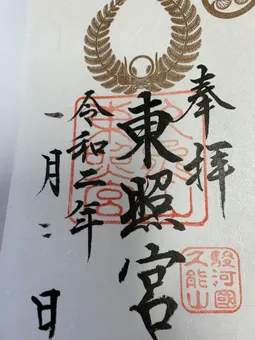 奉拝
東照宮
令和二年
一月二日
駿河國
久能山